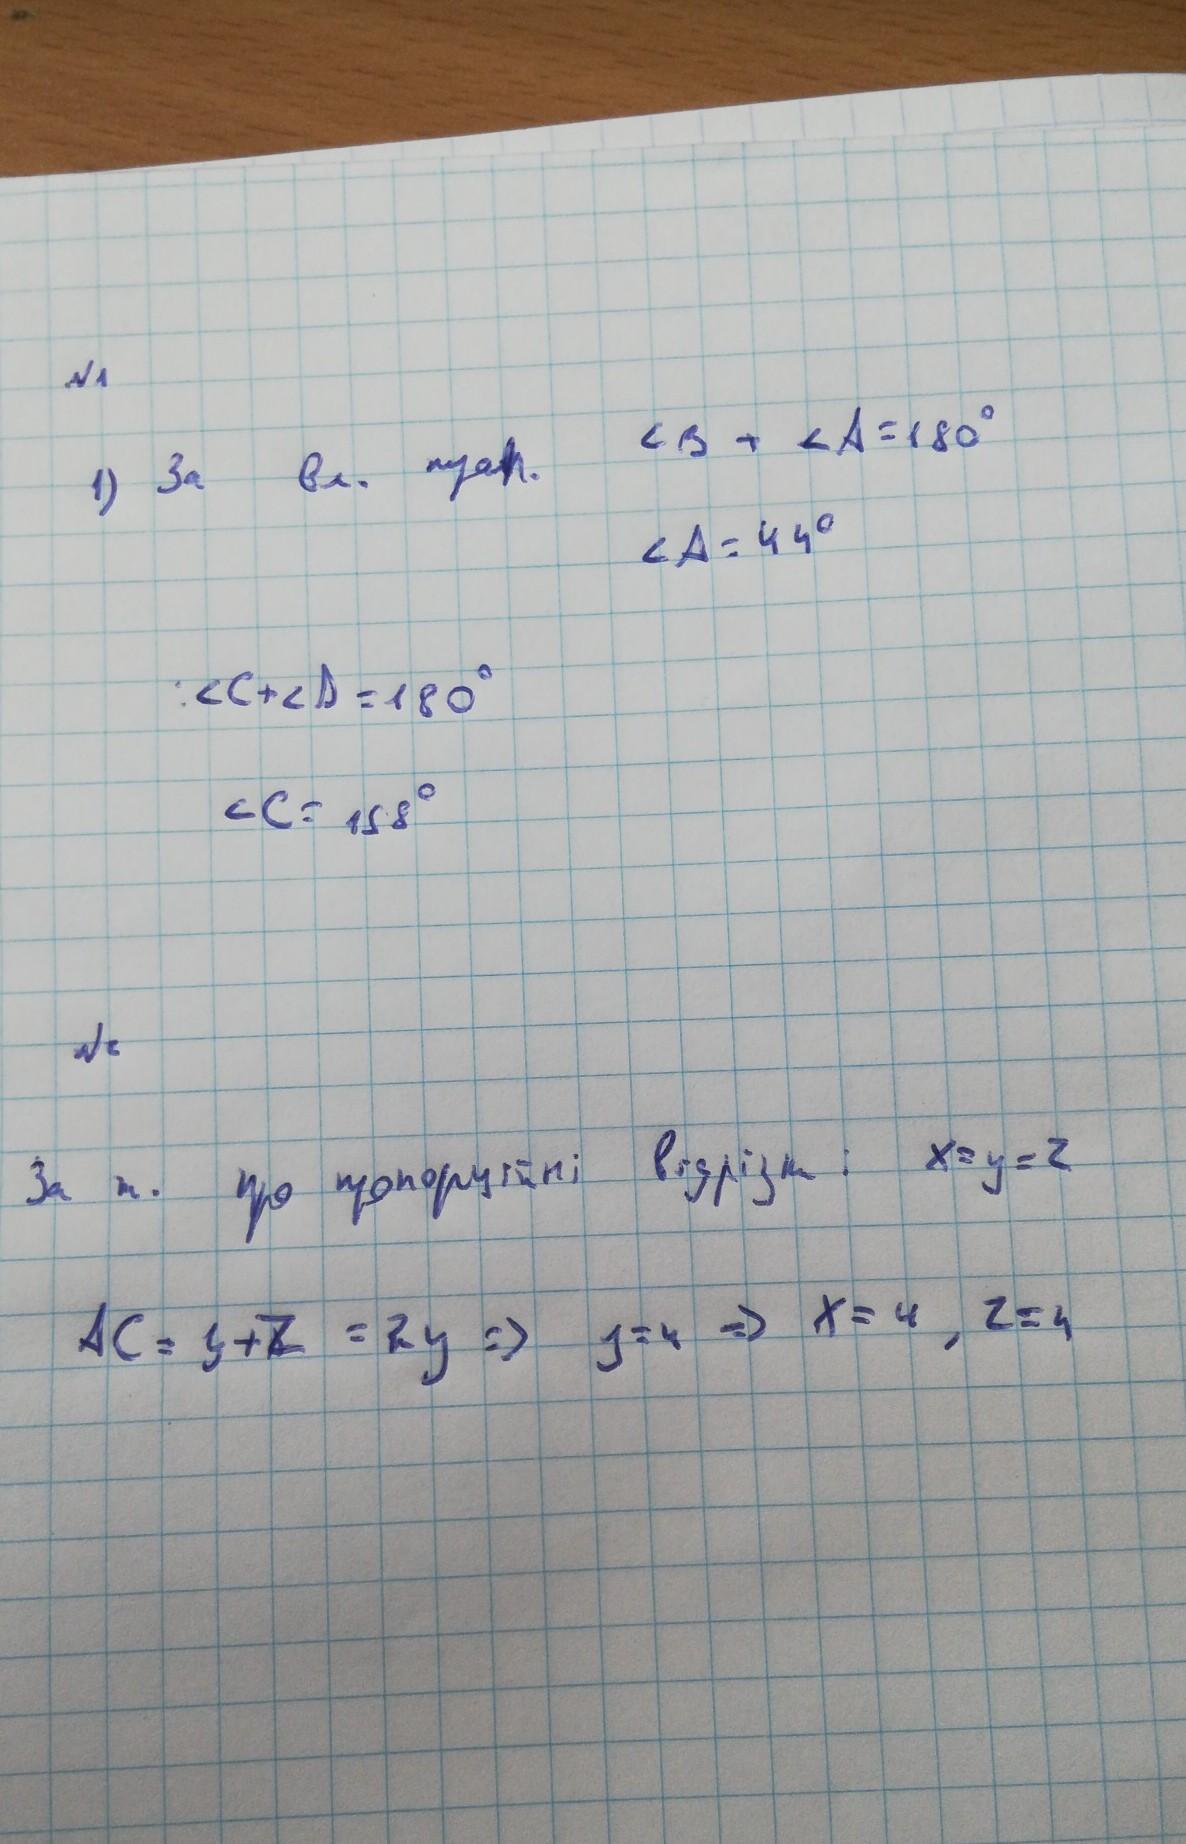 №1
1) За вл. трап. ∠B + ∠A = 180°
∠A = 44°
∠C + ∠D = 180°
∠C = 158°
№2
За т. про пропорційні відрізки: x = y = z
AC = y + z = 2y => y = 4 => x = 4, z = 4